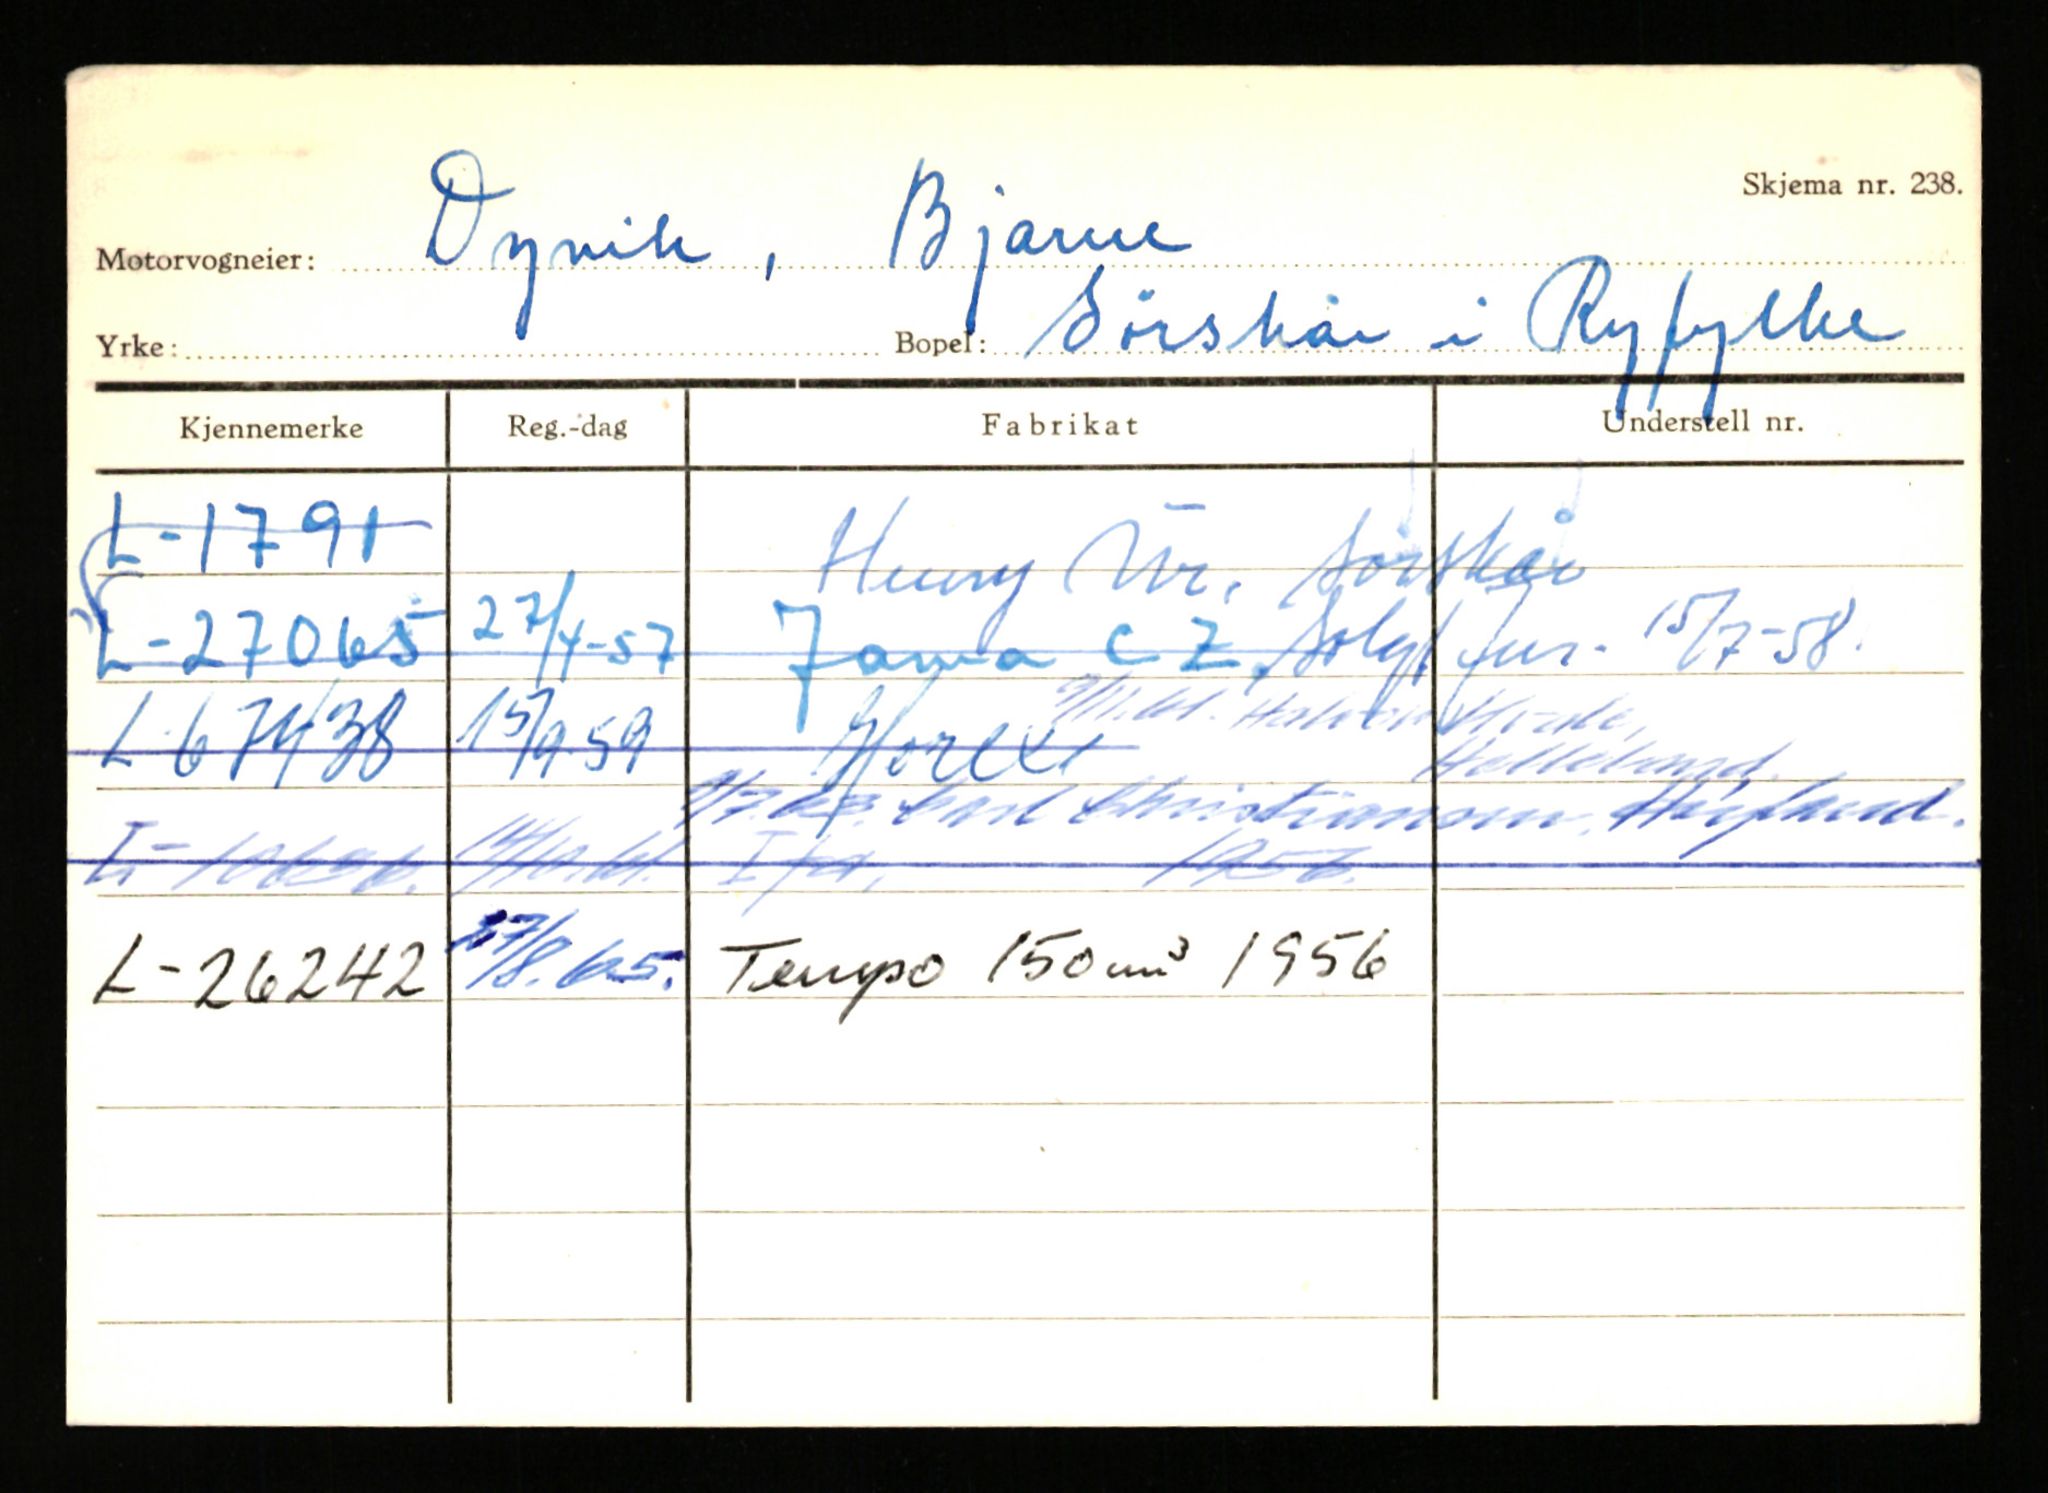 Skjema nr. 238.
Motorvogneier: Dyvik, Bjarne
Yrke: Bopel: Sörskår i Ryfylke
Kjennemerke Reg.-dag Fabrikat Understell nr.
L-1791 Henry Sörskår
L-27065 27/4-57 Jawa CZ. Solgt 15/7-58.
Helleland.
L-67438 15/9.59 Horex
Carl Christiansen,
Ifa, 1956.
L-26242 27/8.65. Tempo 150 cm³ 1956